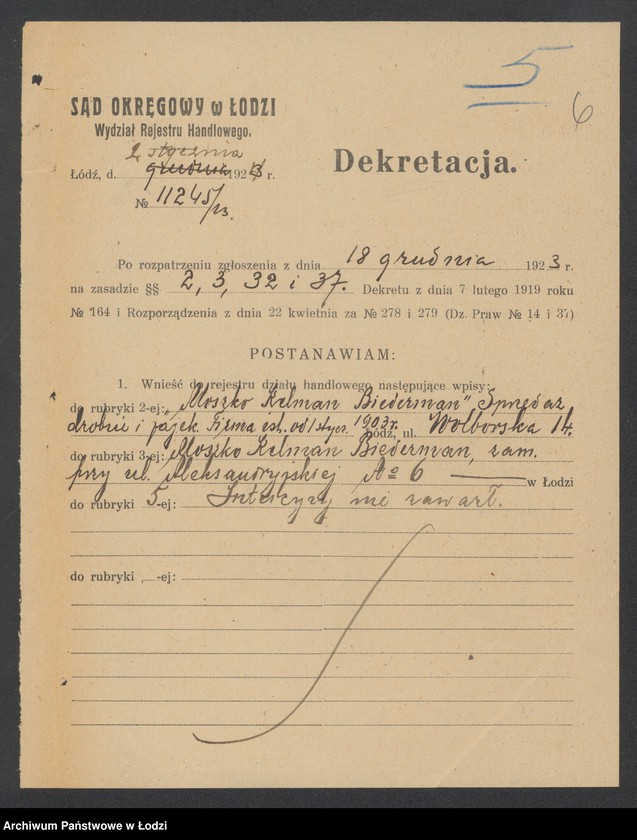 5
6
SĄD OKRĘGOWY w ŁODZI
Wydział Rejestru Handlowego.
2 stycznia
Łódź, d. grudnia 1923 r.
№ 11245/23.
Dekretacja.
Po rozpatrzeniu zgłoszenia z dnia 18 grudnia 1923 r.
na zasadzie §§ 2, 3, 32 i 37. Dekretu z dnia 7 lutego 1919 roku
№ 164 i Rozporządzenia z dnia 22 kwietnia za № 278 i 279 (Dz. Praw № 14 i 37)
POSTANAWIAM:
1. Wnieść do rejestru działu handlowego następujące wpisy:
do rubryki 2-ej: „Moszko Kelman Biederman" Sprzedaż
drobiu i jajek. Firma ist. od 1 stycz. 1903 r. Łódź, ul. Wolborska 14.
do rubryki 3-ej: Moszko Kelman Biederman, zam.
przy ul. Aleksandryjskiej № 6 w Łodzi
do rubryki 5-ej: Intercyzy nie zawarł.
do rubryki -ej:
Archiwum Państwowe w Łodzi